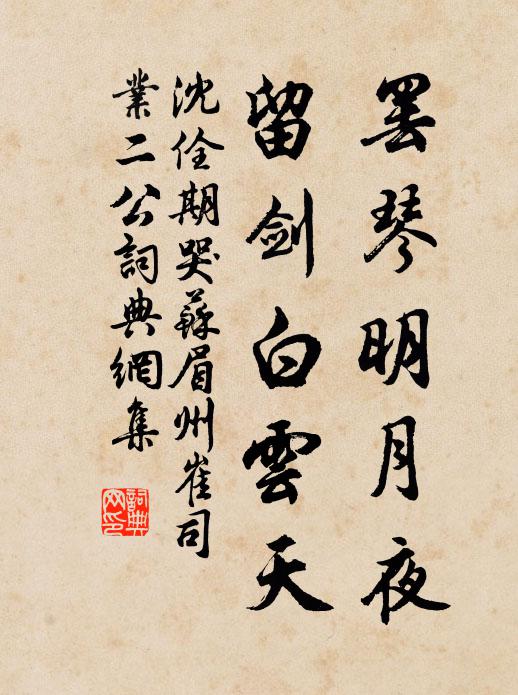 罢琴明月夜
留剑白雲天
沈佺期哭蘇眉州崔司
業二公詞典網集
詞典
网印